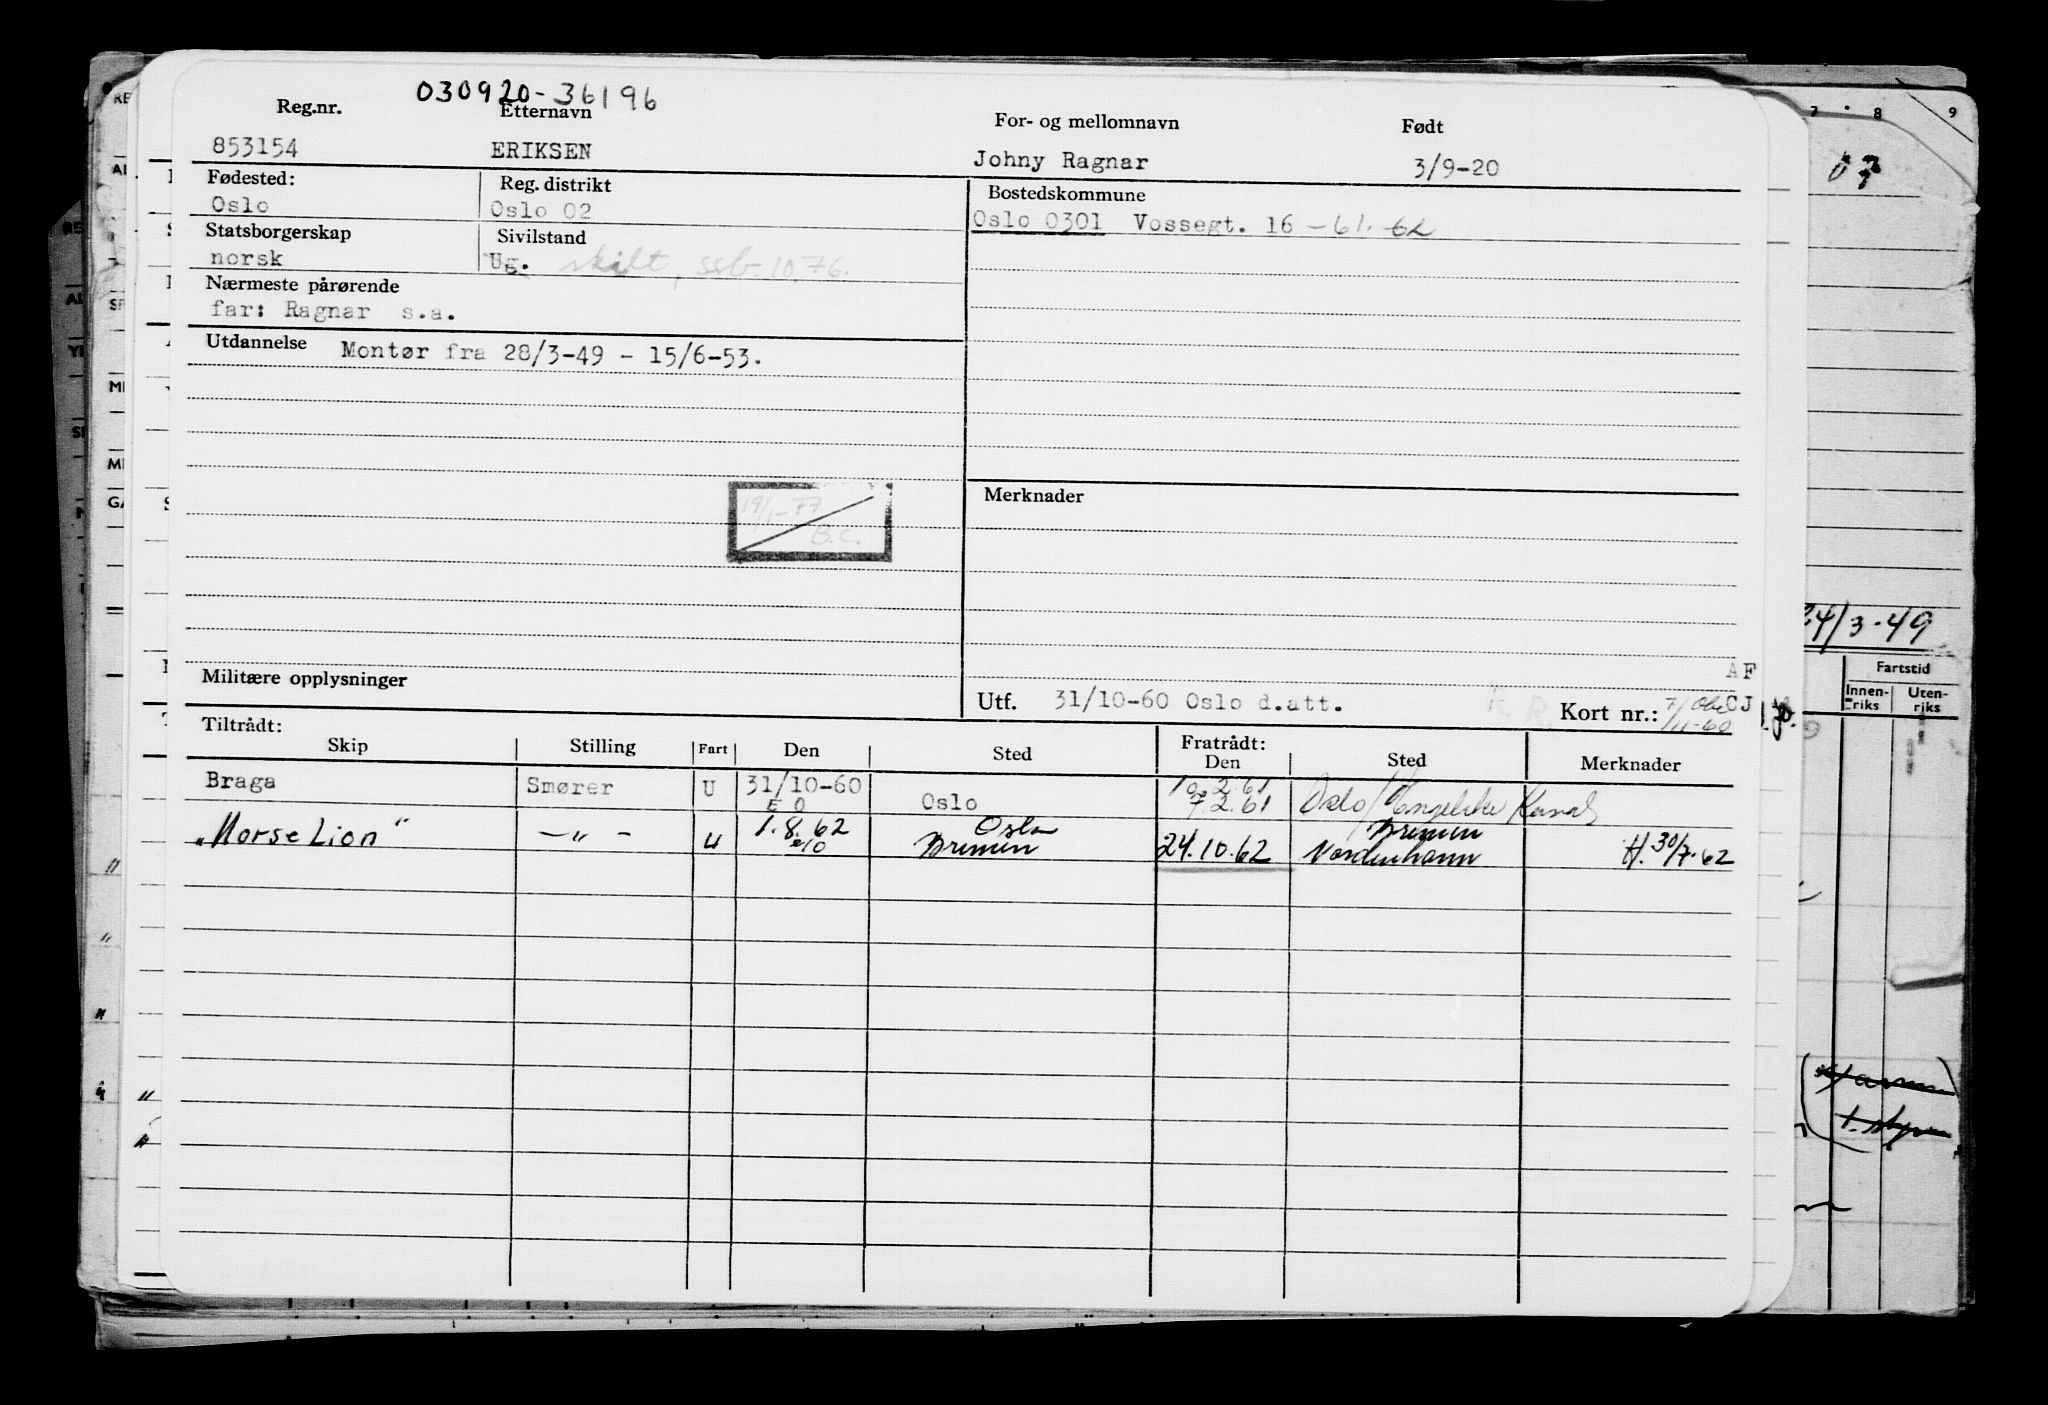 030920-36196
Reg.nr. Etternavn For- og mellomnavn Født
853154 ERIKSEN Johny Ragnar 3/9-20
Fødested: Reg. distrikt Bostedskommune
Oslo Oslo 02 Oslo 0301 Vossegt. 16 - 61. - 62
Statsborgerskap Sivilstand
norsk Ug. skilt, ssb. 10.76.
Nærmeste pårørende
far: Ragnar s.a.
Utdannelse Montør fra 28/3-49 - 15/6-53.
19/1-77
B.C.
Merknader
Militære opplysninger
AF
Utf. 31/10-60 Oslo d.att. Kort nr.: 7/11-60 CJ
Tiltrådt: Fratrådt:
Skip Stilling Fart Den Sted Den Sted Merknader
Braga Smører U 31/10-60 Oslo 10.2.61 7.2.61 Oslo/Engelske Kanal
E O
"Norse Lion" -"- U 1.8.62 Oslo Bremen 24.10.62 Bremen Nordenhamn H. 30/7-62
7 8 9
03
24/3-49
Fartstid
Innenriks Utenriks